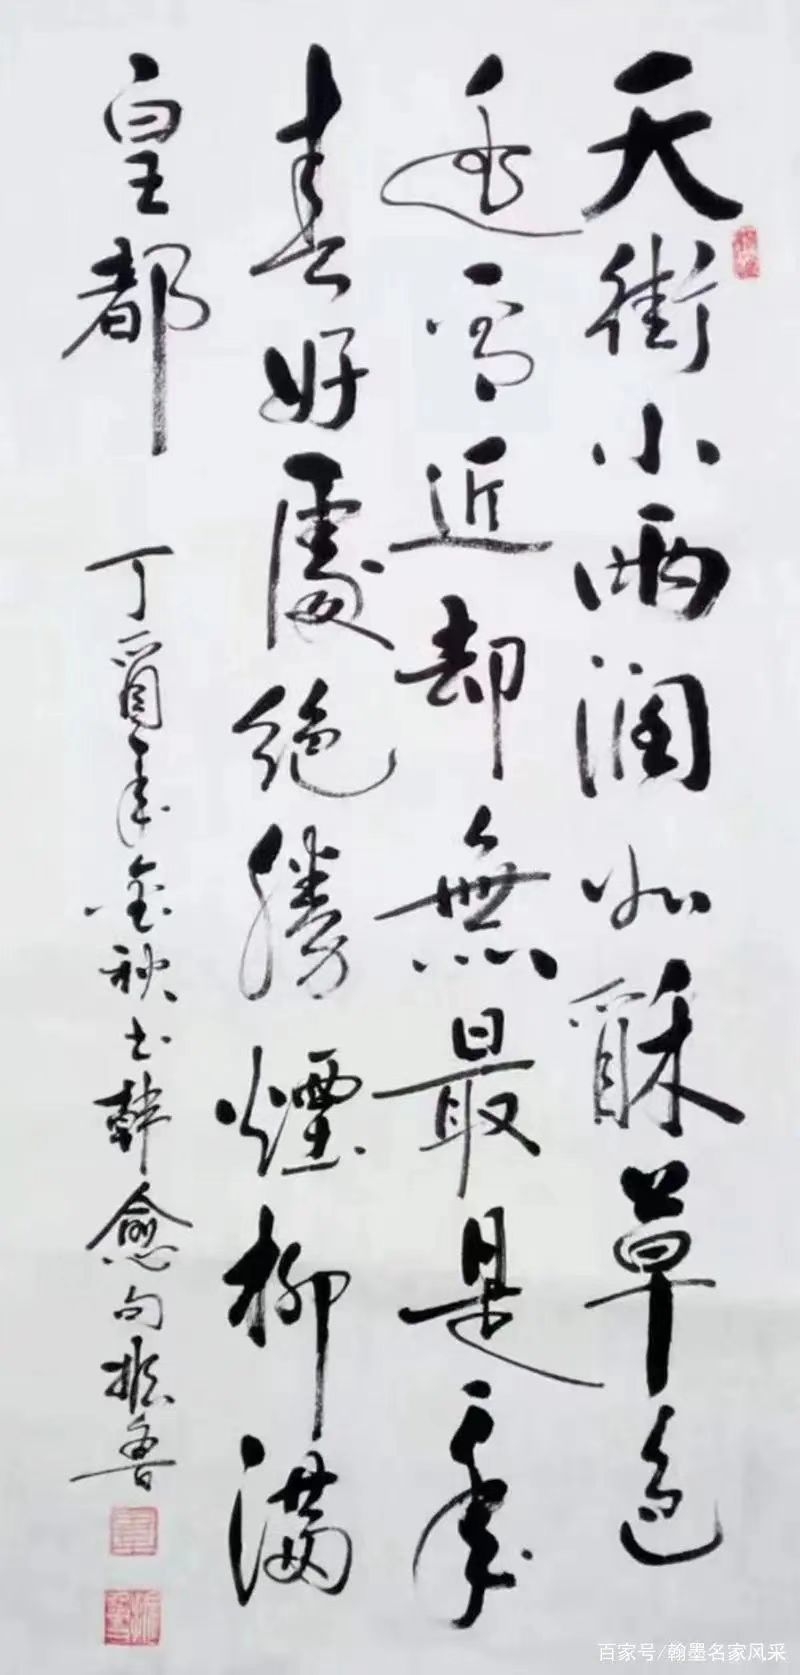 天街小雨润如酥草色
遥看近却無最是年
春好處絶勝煙柳滿
皇都
丁酉年金秋书韓愈句振鲁
百家号/翰墨名家风采